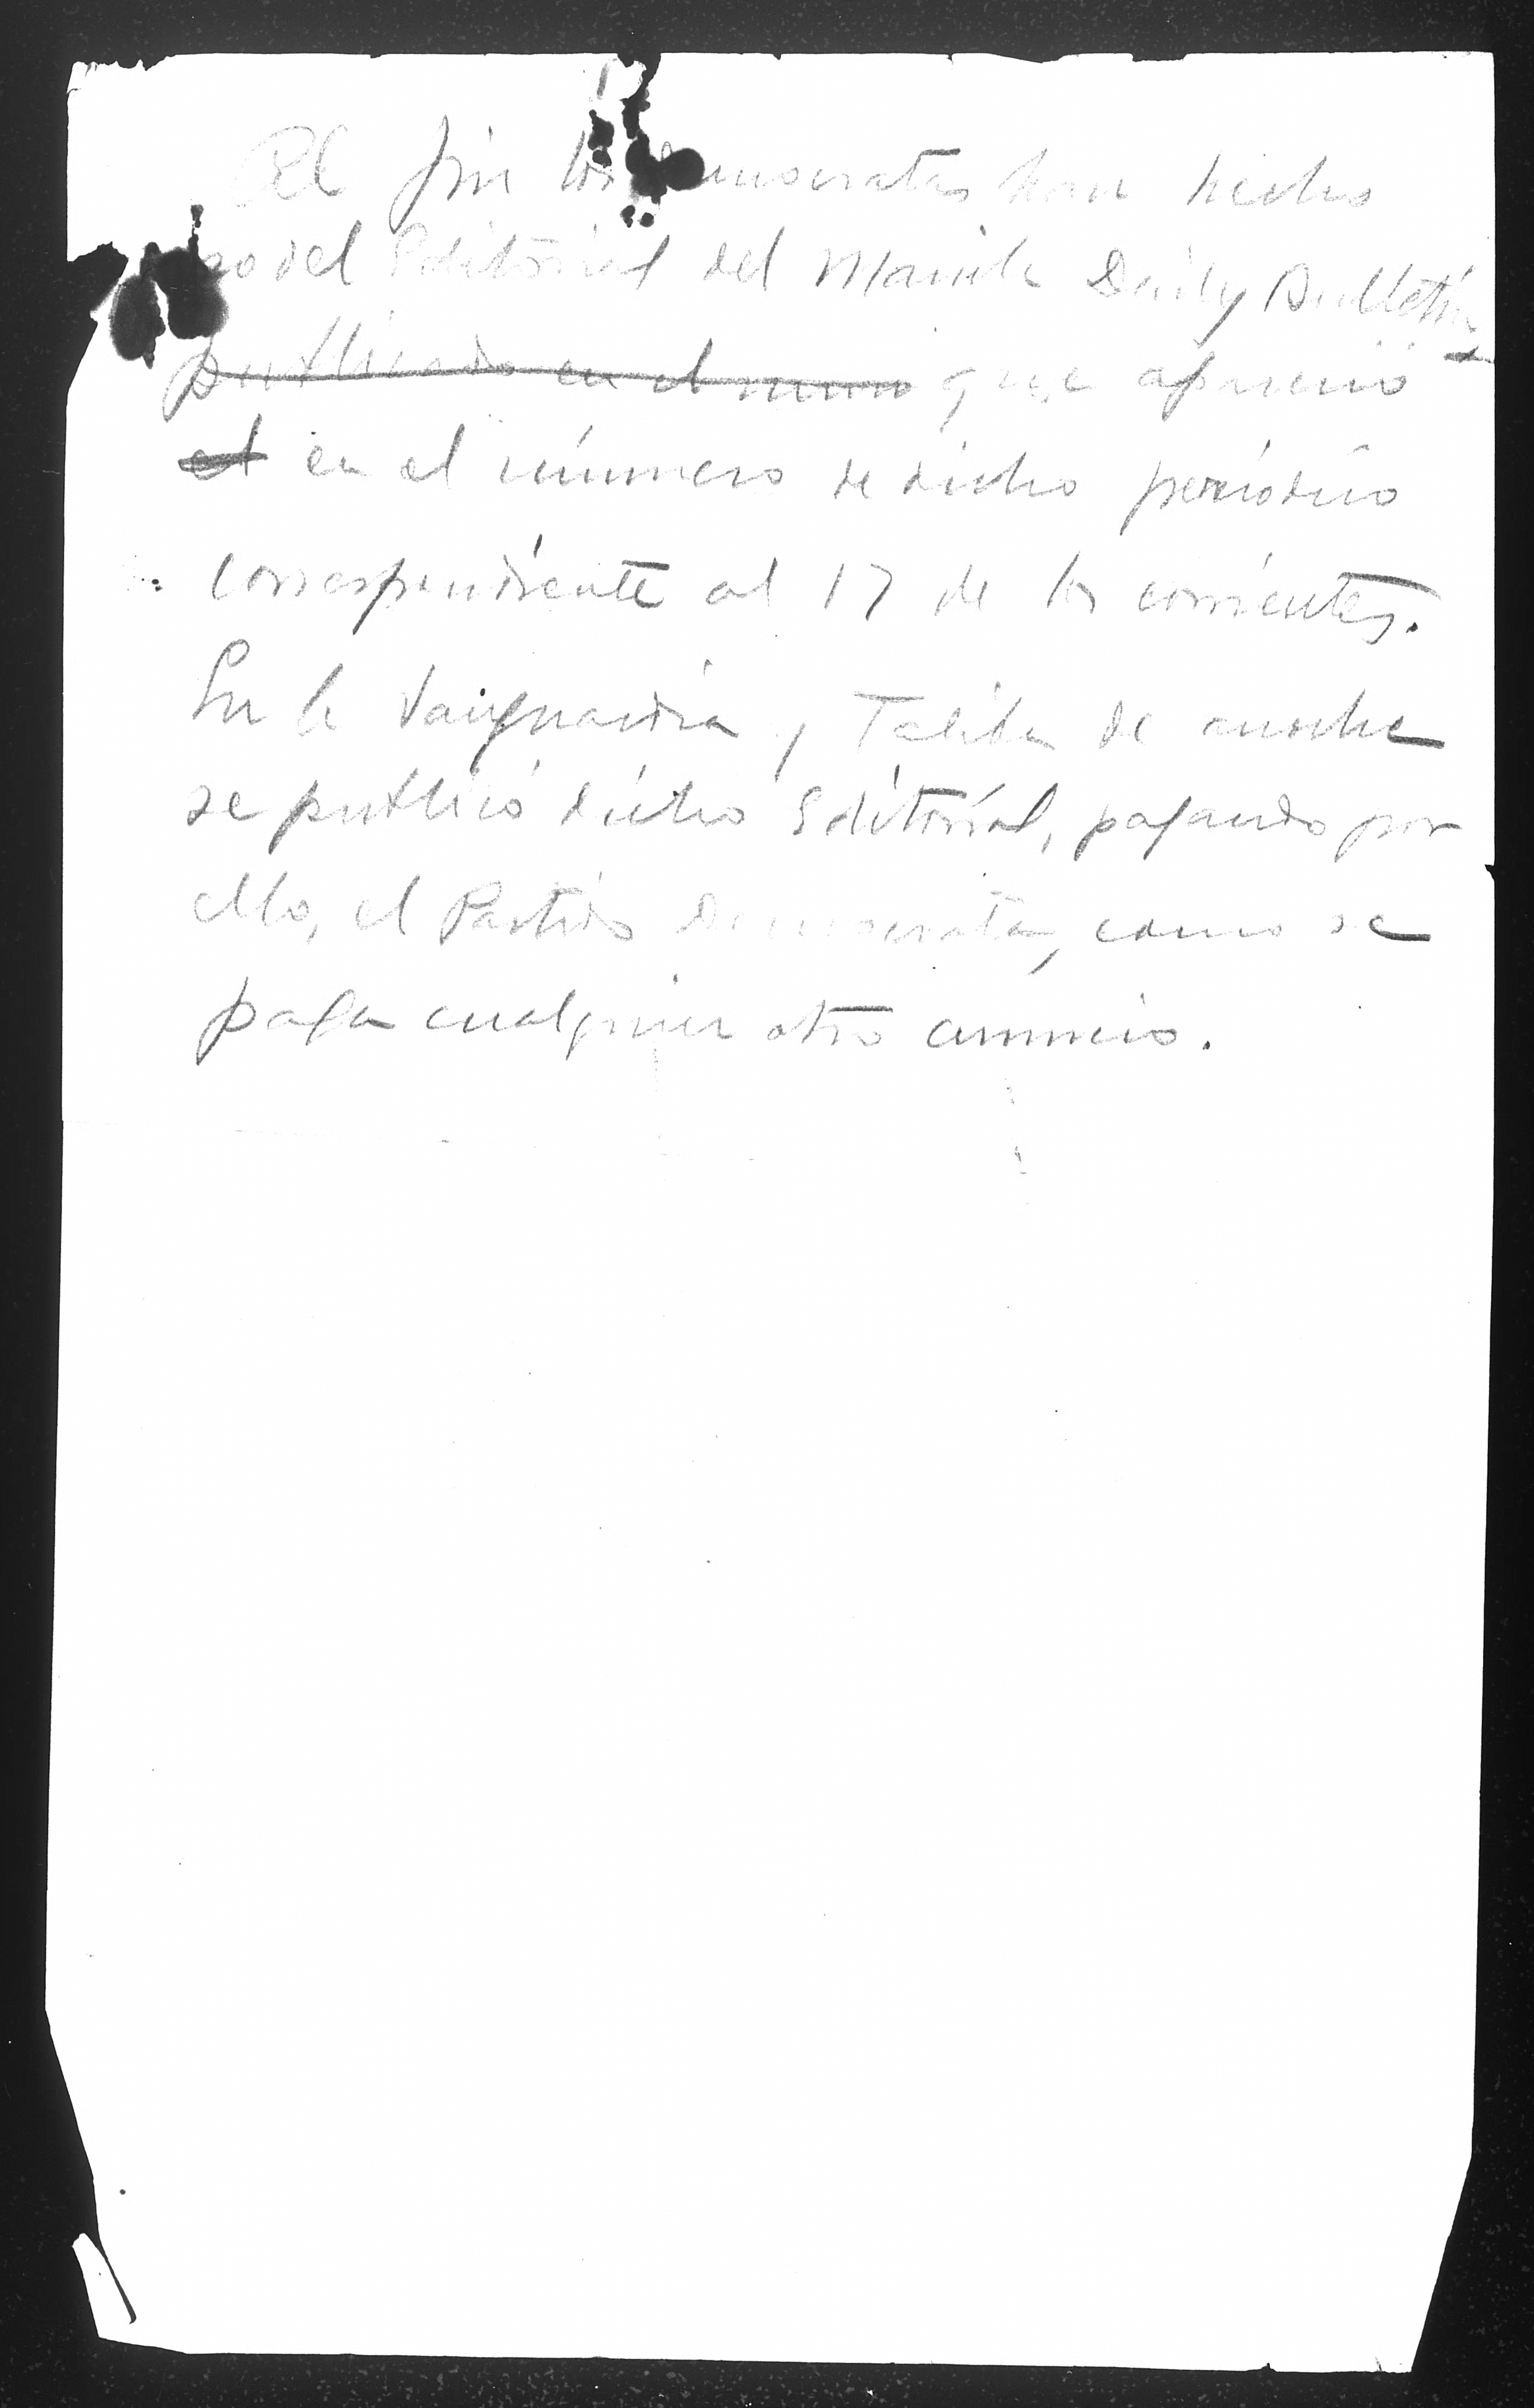 Al fin los demócratas han hecho
uso del Editorial del Manila Daily Bulletin
publicado en el numero que apareció
el en el número de dicho periódico
correspondiente al 17 de los corrientes.
En la Vanguardia y Taliba de anoche
se publicó dicho Editorial, pagando por
ello, el Partido Democrata, como se
paga cualquier otro anuncio.